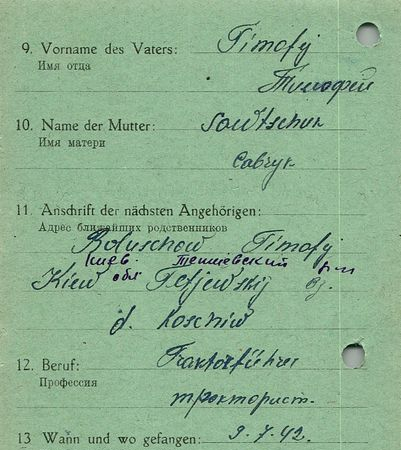 9. Vorname des Vaters: Timofy
Имя отца
Тимофей
10. Name der Mutter: Sawtschuk
Имя матери
Савчук
11. Anschrift der nächsten Angehörigen:
Адрес ближайших родственников
Boluschow Timofy
Киев. обл
Kiew Tetjewskij
d. Koschiw
12. Beruf: Traktorführer
Профессия
тракторист.
13 Wann und wo gefangen: 9.7.42.